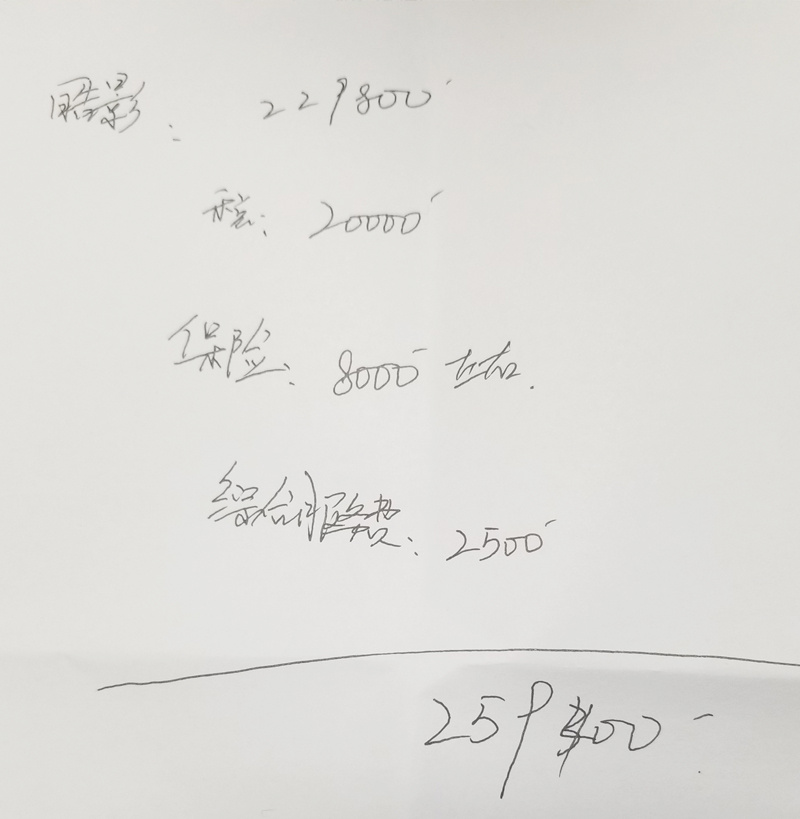 皓影: 229800
税: 20000
保险: 8000左右.
综合服务费: 2500